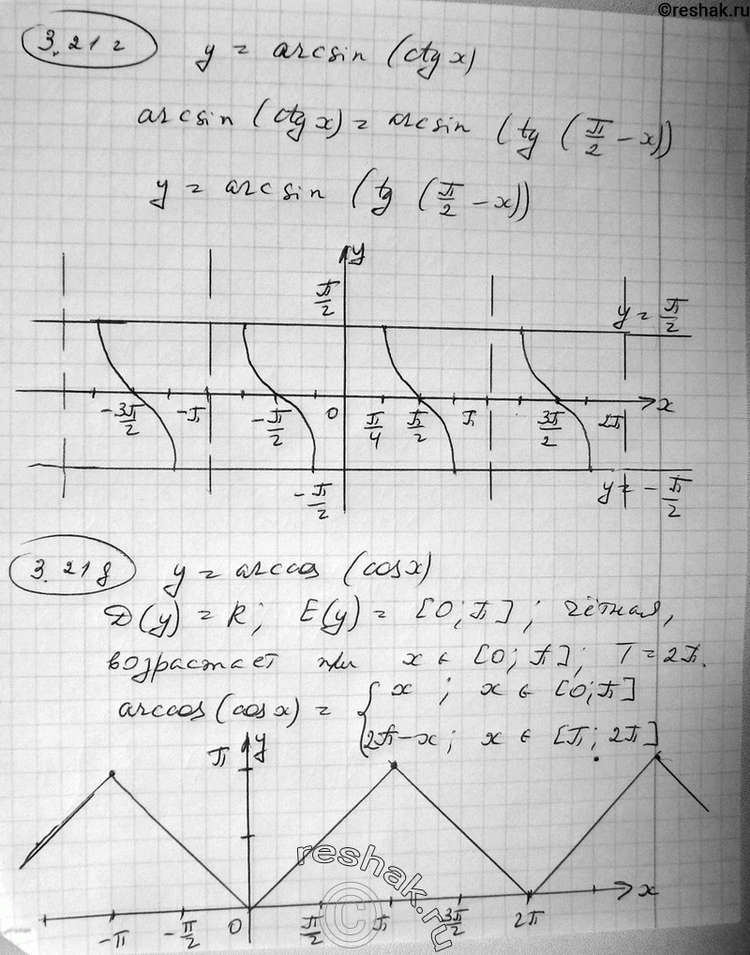 ©reshak.ru
3.21г y = arcsin (ctg x)
arcsin (ctg x) = arcsin (tg (π/2 - x))
y = arcsin (tg (π/2 - x))
y
π/2
y = π/2
-3π/2 -π -π/2 0 π/4 π/2 π 3π/2 2π x
-π/2
y = -π/2
3.21д y = arccos (cos x)
D(y) = R; E(y) = [0; π]; чётная,
возрастает при x ∈ [0; π]; T = 2π.
arccos (cos x) = { x ; x ∈ [0; π]
2π - x; x ∈ [π; 2π]
π y
reshak.ru
©
x
-π -π/2 0 π/2 π 3π/2 2π